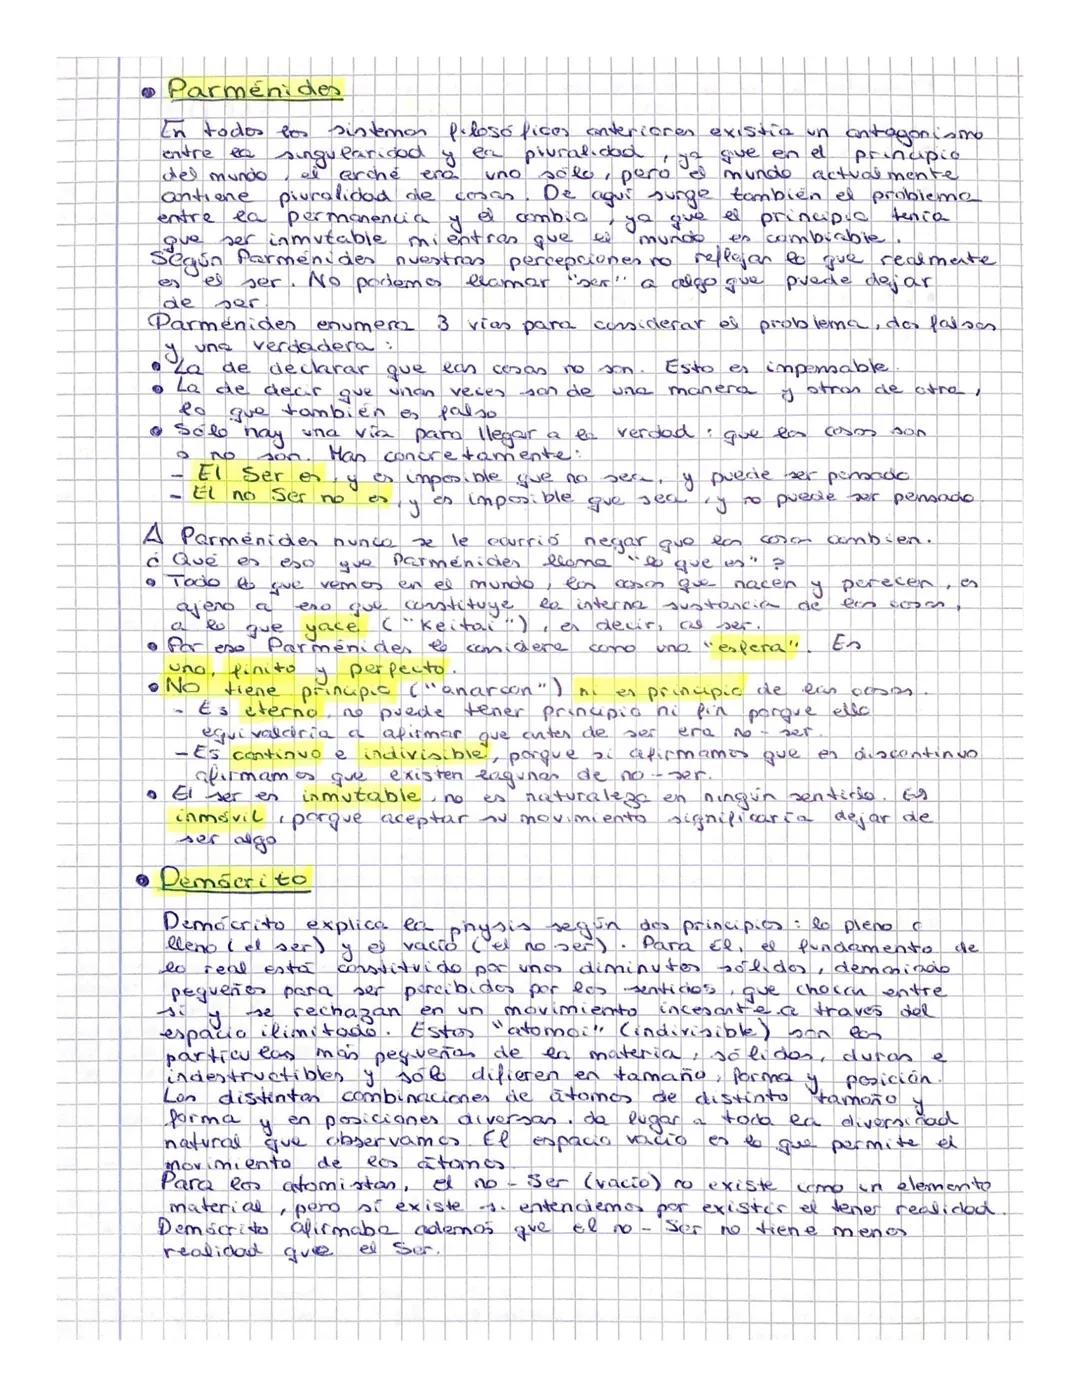 • Parménides
En todos los sistemas filosóficos anteriores existía un antagonismo
entre la singularidad y la pluralidad, ya que en el principio
del mundo, el arché era uno sólo, pero el mundo actualmente
contiene pluralidad de cosas. De aquí surge también el problema
entre la permanencia y el cambio, ya que el principio tenía
que ser inmutable mientras que el mundo es cambiable.
Según Parménides nuestras percepciones no reflejan lo que realmente
es el ser. No podemos llamar "ser" a algo que puede dejar
de ser.
Parménides enumera 3 vías para considerar el problema, dos falsas
y una verdadera:
• La de declarar que las cosas no son. Esto es impensable.
• La de decir que unas veces son de una manera y otras de otra,
lo que también es falso
• Sólo hay una vía para llegar a la verdad: que las cosas son
o no son. Mas concretamente:
- El Ser es, y es imposible que no sea, y puede ser pensado
- El no Ser no es, y es imposible que sea, y no puede ser pensado
A Parménides nunca se le ocurrió negar que las cosas cambien.
¿Qué es eso que Parménides llama "lo que es"?
• Todo lo que vemos en el mundo, las cosas que nacen y perecen, es
ajeno a eso que constituye la interna sustancia de las cosas,
a lo que yace ("Keitai"), es decir, al ser.
• Por eso Parménides lo considera como una "esfera". Es
uno, finito y perfecto.
• No tiene principio ("anarcon") ni es principio de las cosas.
- Es eterno, no puede tener principio ni fin porque ello
equivaldría a afirmar que antes de ser era no-ser.
- Es continuo e indivisible, porque si afirmamos que es discontinuo
afirmamos que existen lagunas de no-ser.
• El ser es inmutable, no es naturaleza en ningún sentido. Es
inmóvil, porque aceptar su movimiento significaría dejar de
ser algo
• Demócrito
Demócrito explica la physis según dos principios: lo pleno o
lleno (el ser) y el vacío (el no ser). Para él, el fundamento de
lo real está constituido por unos diminutos sólidos, demasiado
pequeños para ser percibidos por los sentidos, que chocan entre
sí y se rechazan en un movimiento incesante a través del
espacio ilimitado. Estos "atomoi" (indivisible) son las
partículas más pequeñas de la materia, sólidas, duras e
indestructibles y sólo difieren en tamaño, forma y posición.
Las distintas combinaciones de átomos de distinto tamaño y
forma y en posiciones diversas, da lugar a toda la diversidad
natural que observamos. El espacio vacío es lo que permite el
movimiento de los átomos.
Para los atomistas, el no-Ser (vacío) no existe como un elemento
material, pero sí existe si entendemos por existir el tener realidad.
Demócrito afirmaba además que el no-Ser no tiene menos
realidad que el Ser.